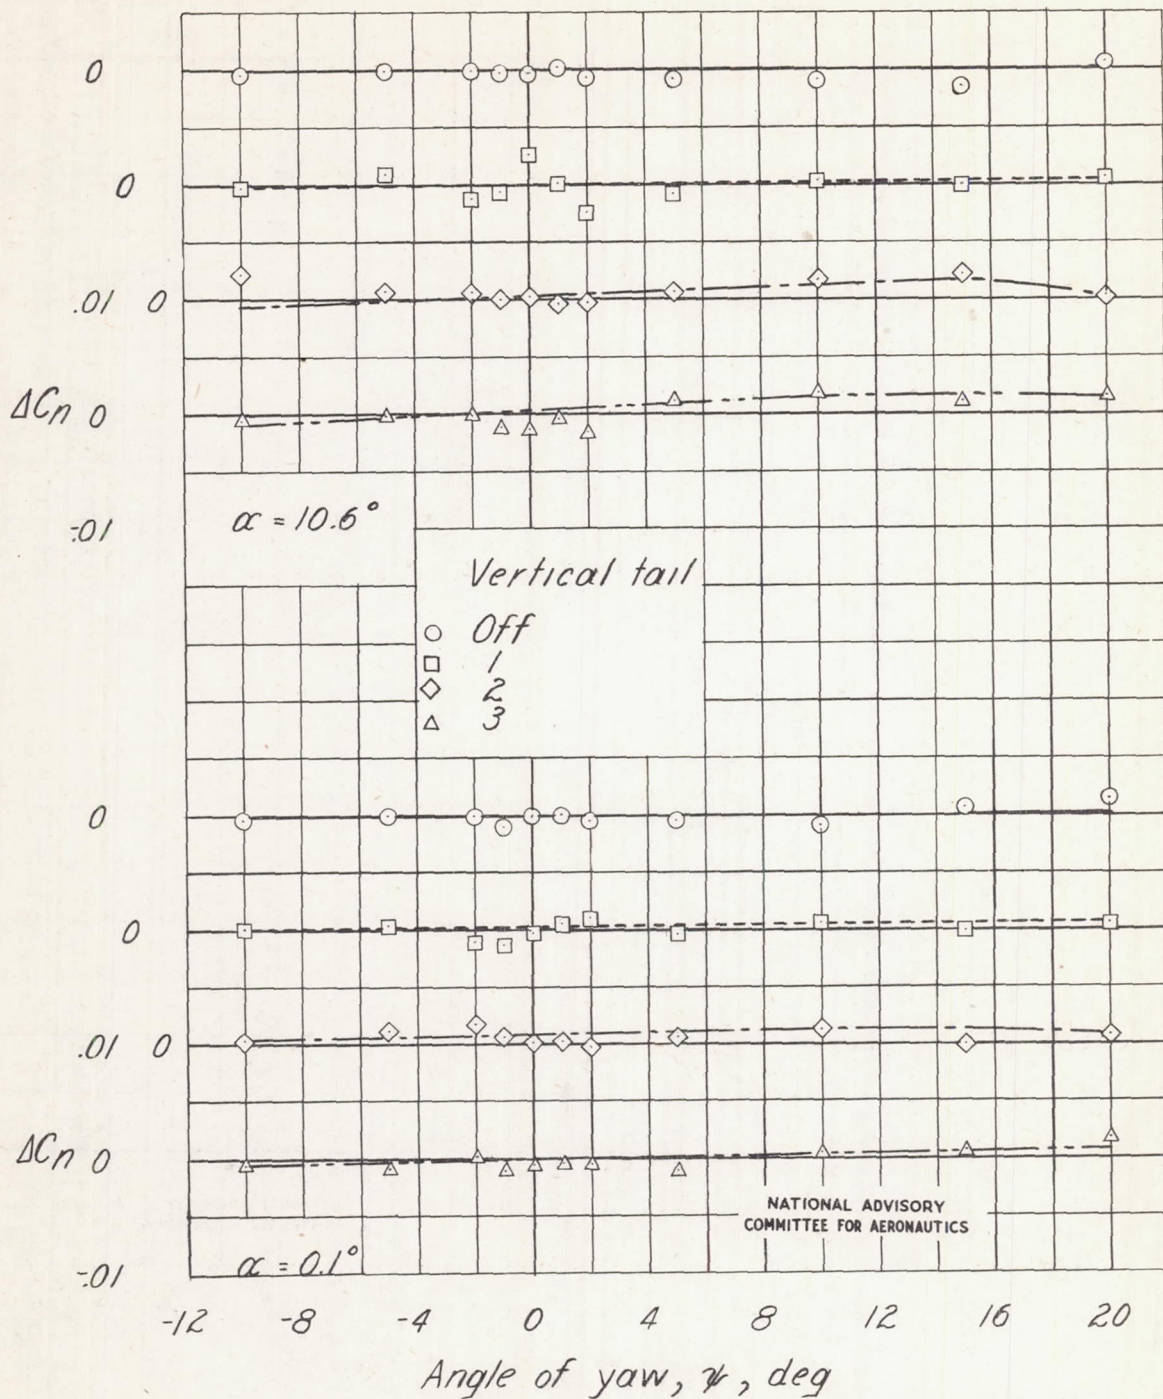 0
0
.01 0
ΔCn 0
-.01
α = 10.6°
Vertical tail
Off
1
2
3
0
0
.01 0
ΔCn 0
NATIONAL ADVISORY
COMMITTEE FOR AERONAUTICS
-.01
α = 0.1°
-12 -8 -4 0 4 8 12 16 20
Angle of yaw, ψ, deg